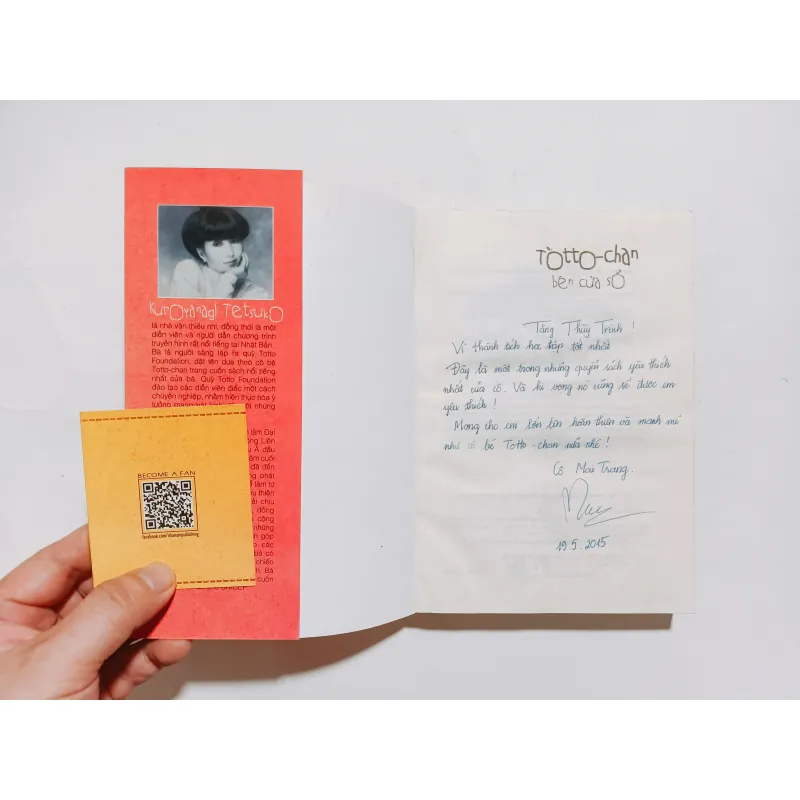 KUROYANAGI TETSUKO
là nhà văn thiếu nhi, đồng thời là một
diễn viên và người dẫn chương trình
truyền hình rất nổi tiếng tại Nhật Bản.
Bà là người sáng lập ra quỹ Totto
Foundation, đặt tên dựa theo cô bé
Totto-chan trong cuốn sách nổi tiếng
nhất của bà. Quỹ Totto Foundation
đào tạo các diễn viên điếc một cách
chuyên nghiệp, nhằm hiện thực hóa ý
những
làm Đại
Liên
Á đầu
năm cuối
đã đến
phát
làm từ
thiện
chịu
đồng
cộng
những
góp
các
bà có
nhiên
Bà
cuốn
UNICEF
BECOME A FAN
facebook.com/nhanampublishing
TÔTTO-chan
bên cửa sổ
Tặng Thùy Trinh !
Vì thành tích học tập tốt nhất
Đây là một trong những quyển sách yêu thích
nhất của cô. Và hi vọng nó cũng sẽ được em
yêu thích !
Mong cho em lớn lên hoàn thiện và mạnh mẽ
như cô bé Totto-chan nữa nhé !
Cô Mai Trang.
19.5.2015